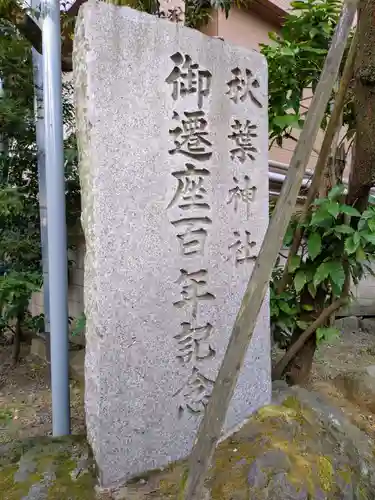 秋葉神社
御遷座百年記念